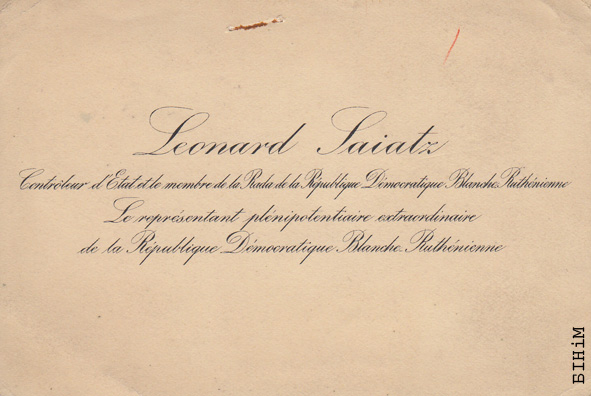 Leonard Saiatz
Contrôleur d'Etat et le membre de la Rada de la République Démocratique Blanche Ruthénienne
Le représentant plénipotentiaire extraordinaire
de la République Démocratique Blanche Ruthénienne
БІНіМ